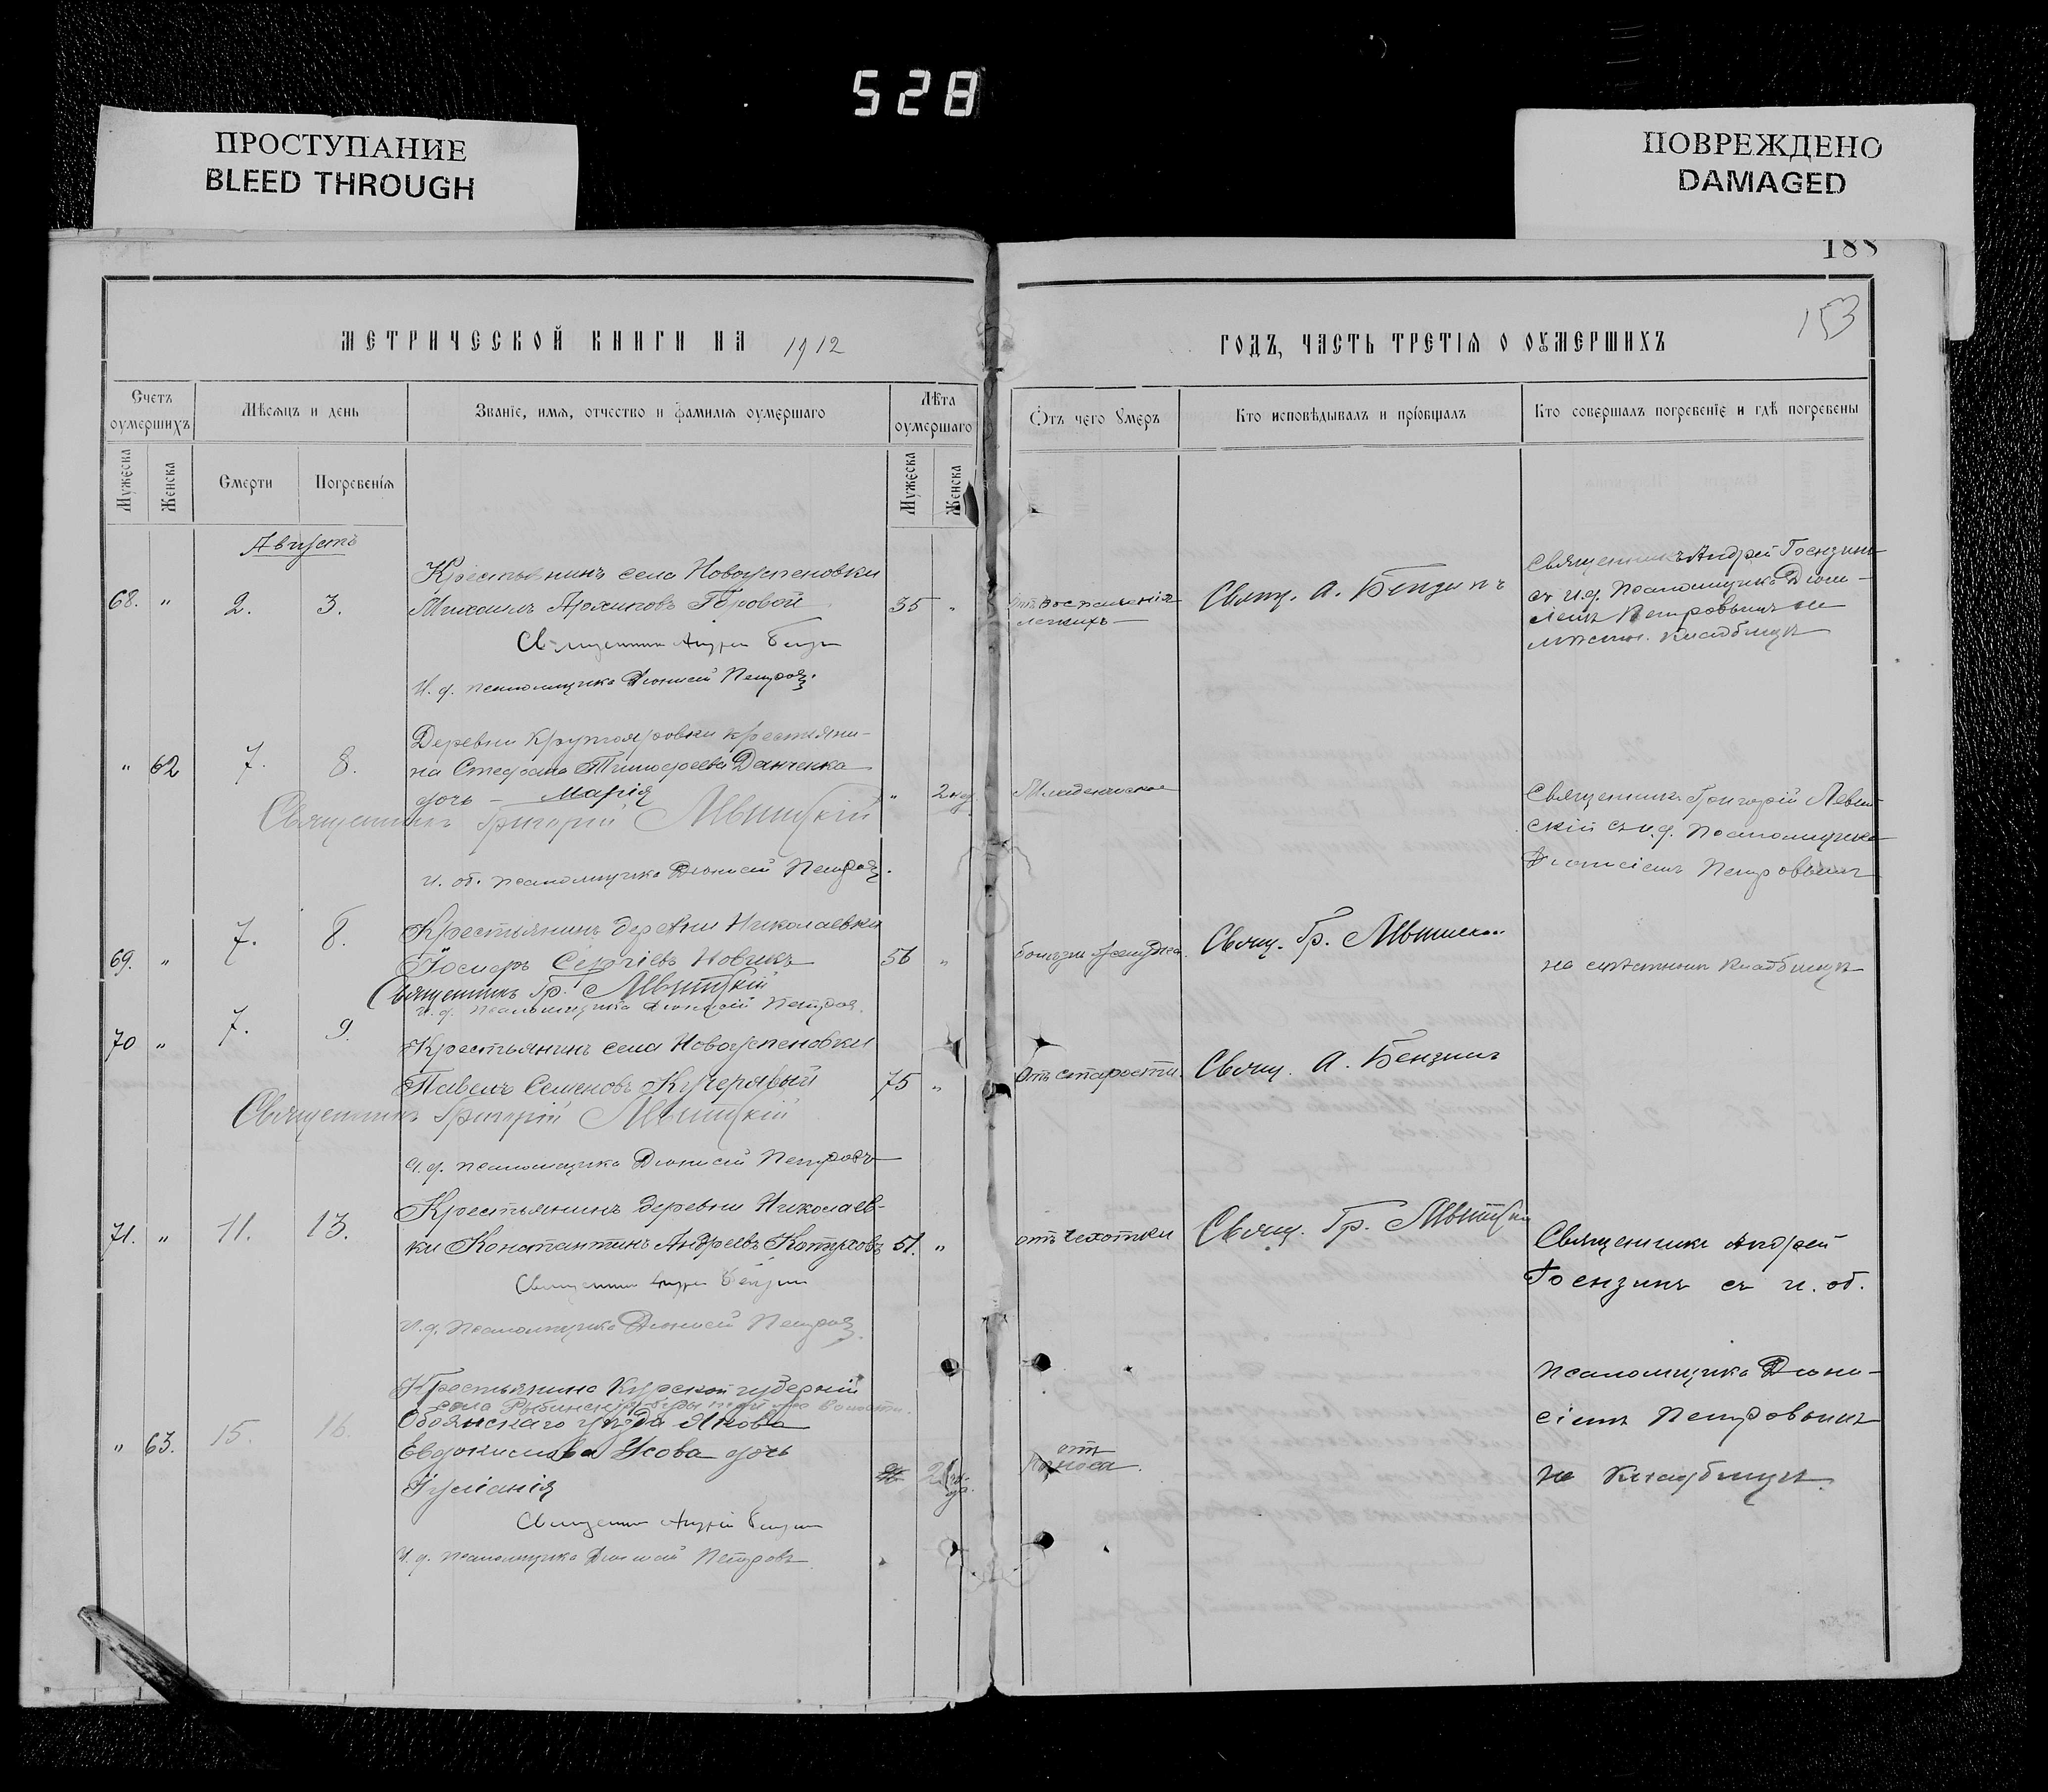 528
ПРОСТУПАНИЕ
BLEED THROUGH
ПОВРЕЖДЕНО
DAMAGED
188
153
МЕТРИЧЕСКОЙ КНИГИ НА 1912
ГОДЪ, ЧАСТЬ ТРЕТІЯ О ОУМЕРШИХЪ
Счетъ оумершихъ
Мѣсяцъ и день
Званіе, имя, отчество и фамилія оумершаго
Лѣта оумершаго
Отъ чего умеръ
Кто исповѣдывалъ и пріобщалъ
Кто совершалъ погребеніе и гдѣ погребены
Мужеска
Женска
Смерти
Погребенія
Мужеска
Женска
Августъ
68. " 2. 3.
Крестьянинъ села Новоуспеновки
Михаилъ Архиповъ Горовой
35 "
Отъ воспаленія
легкихъ
Свящ. А. Бензинъ
Священникъ Андрей Бензинъ
съ и.д. псаломщика Діони-
сіемъ Петровымъ на
мѣстн. кладбищѣ
Священникъ Андрей Бензин
И. д. псаломщика Діонисій Петровъ.
" 62 7. 8.
Деревни Круглояровки крестьяни-
на Стефана Тимофеева Данченка
дочь - Марія
" 2 нед.
Младенческое
Священникъ Григорій Левит-
скій съ и.д. псаломщика
Діонисіемъ Петровымъ
Священникъ Григорій Левитскій
и. об. псаломщика Діонисій Петровъ.
69. " 7. 8.
Крестьянинъ деревни Николаевки
Іосифъ Сергіевъ Новикъ
56 "
болѣзни желудка.
Свящ. Гр. Левитскій
на мѣстномъ кладбищѣ
Священникъ Гр. Левитскій
И. д. псаломщика Діонисій Петров.
70 " 7. 9.
Крестьянинъ села Новоуспеновки
Павелъ Семеновъ Кучерявый
75 "
Отъ старости.
Свящ. А. Бензинъ
Священникъ Григорій Левитскій
И. д. псаломщика Діонисій Петровъ
71. " 11. 13.
Крестьянинъ деревни Николаев-
ки Константинъ Андреевъ
51. "
отъ чахотки
Свящ. Гр. Левитскій
Священникъ Андрей
Бензинъ съ и. об.
псаломщика Діони-
сіемъ Петровымъ
на кладбищѣ.
Священник Андрей Бензин
И. д. псаломщика Діонисій Петровъ.
" 63. 15. 16.
Крестьянина Курской губерніи
Обоянскаго уѣзда Якова
Евдокимова Усова дочь
Іуліанія
2
отъ
поноса.
Священник Андрей Бензин
И. д. псаломщика Діонисій Петровъ